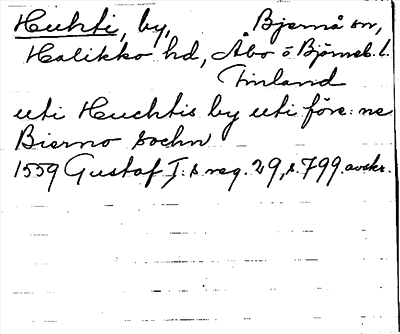 Huhti, by, Bjernå sn,
Halikko hd, Åbo o Björneb. l.
Finland
uti Huchtis by uti före: ne
Bierno sochn
1559 Gustaf I: s reg. 29, s. 799. avskr.